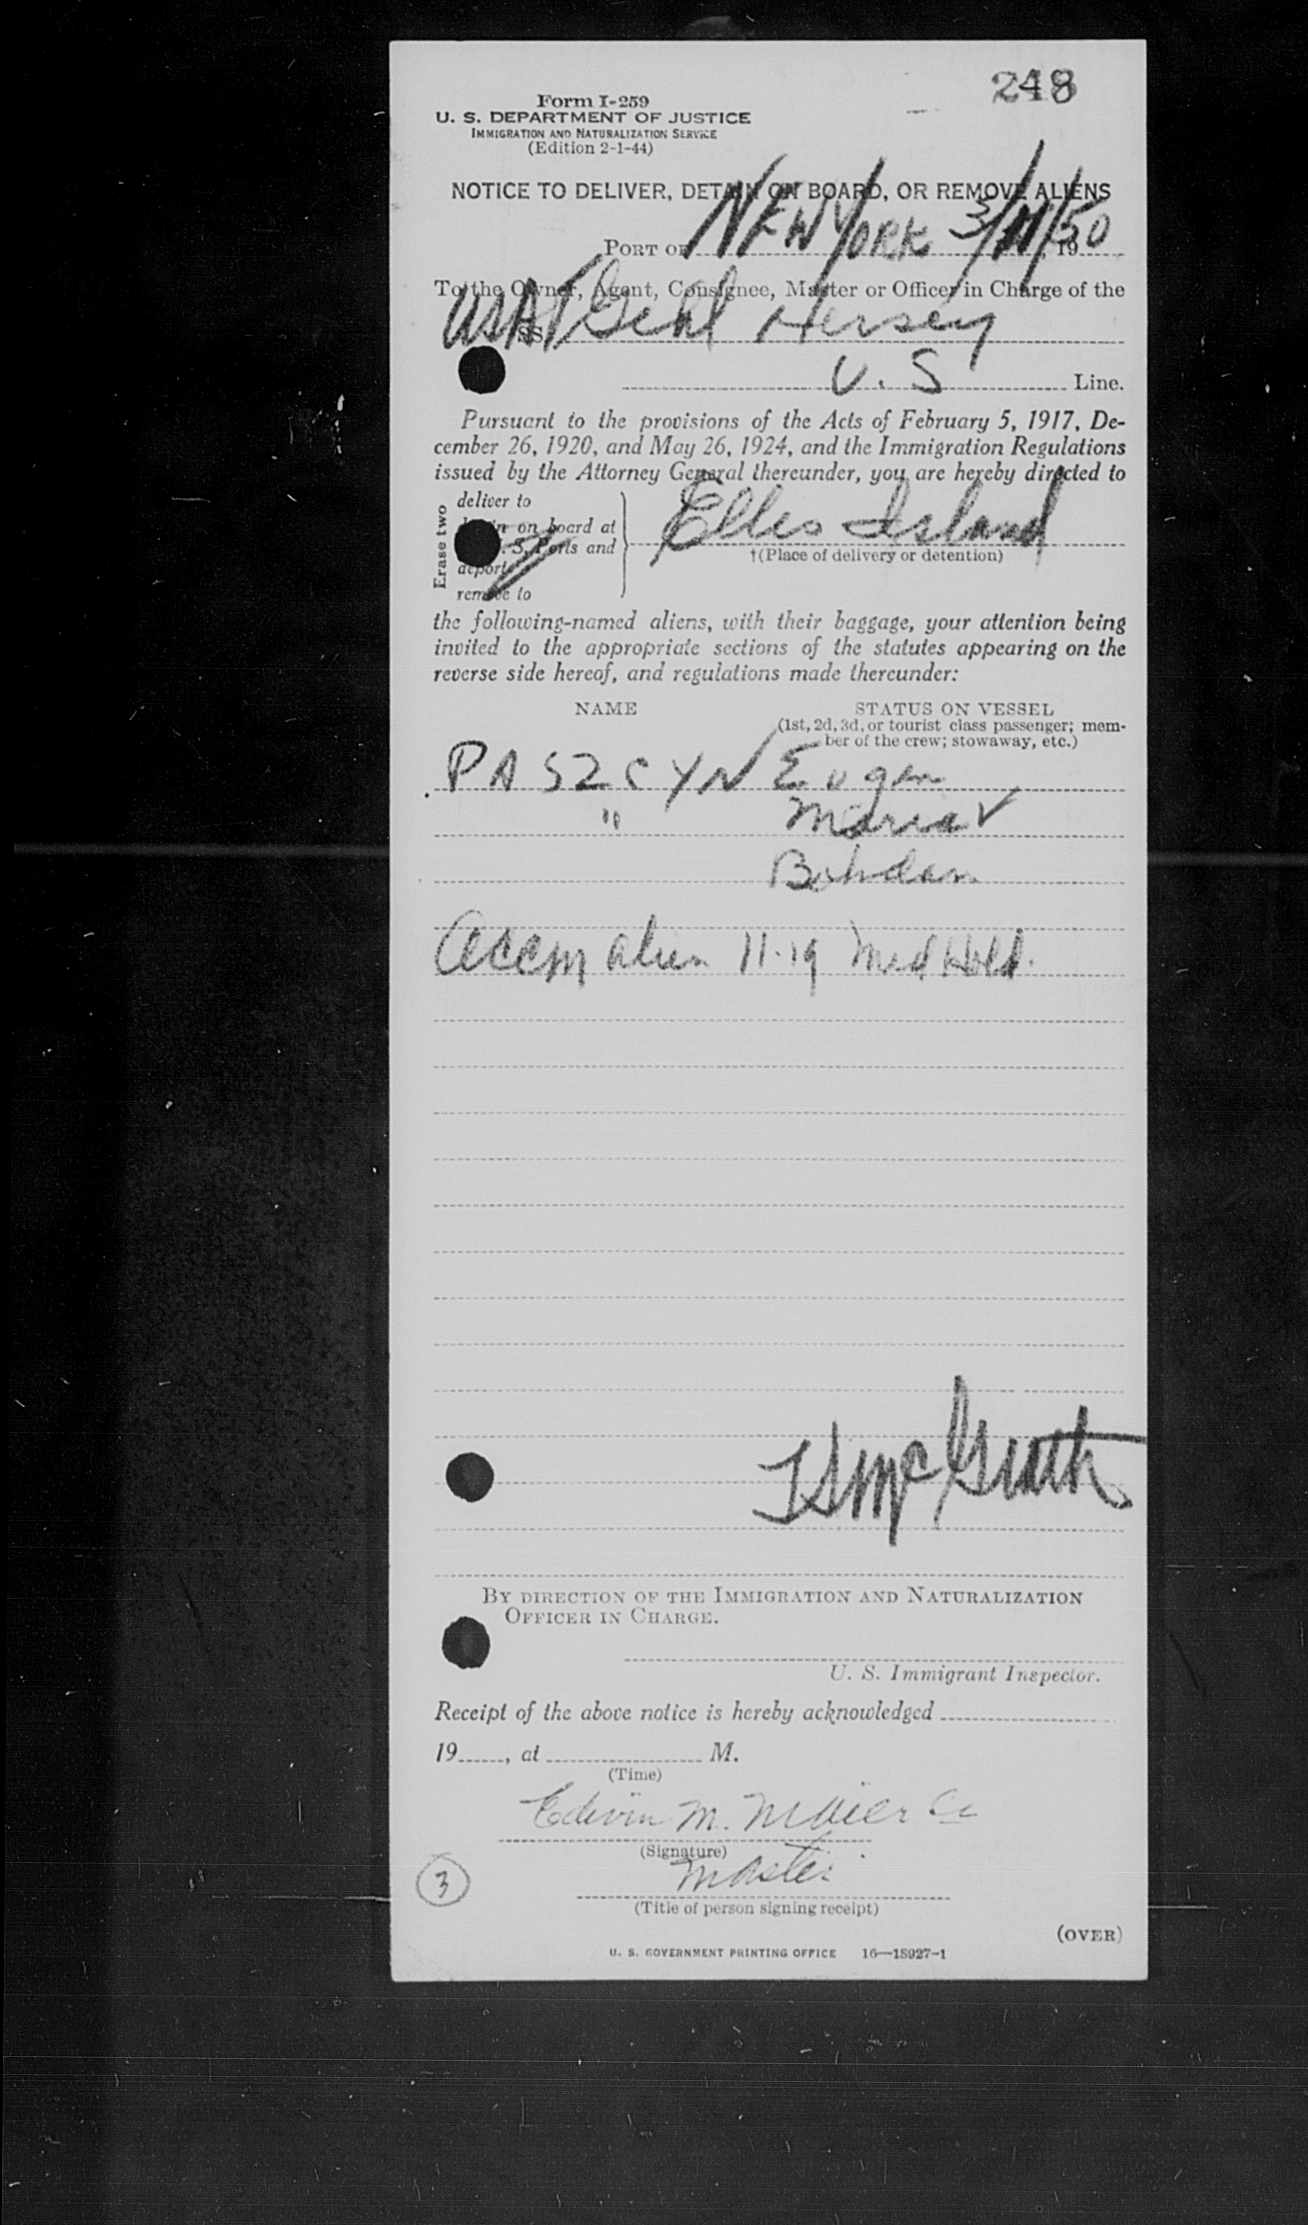 248
Form I-259
U. S. DEPARTMENT OF JUSTICE
IMMIGRATION AND NATURALIZATION SERVICE
(Edition 2-1-44)
NOTICE TO DELIVER, DETAIN ON BOARD, OR REMOVE ALIENS
PORT OF NEW YORK 3/11/50, 19
To the Owner, Agent, Consignee, Master or Officer in Charge of the
SS USAT Genl Hersey
U. S Line.
Pursuant to the provisions of the Acts of February 5, 1917, De-
cember 26, 1920, and May 26, 1924, and the Immigration Regulations
issued by the Attorney General thereunder, you are hereby directed to
Erase two
deliver to
on board at
S. Ports and
deport
remove to
Ellis Island
†(Place of delivery or detention)
the following-named aliens, with their baggage, your attention being
invited to the appropriate sections of the statutes appearing on the
reverse side hereof, and regulations made thereunder:
NAME STATUS ON VESSEL
(1st, 2d, 3d, or tourist class passenger; mem-
ber of the crew; stowaway, etc.)
PASZCYN Eugen
" Maria ✓
Bohdan
accm alien 11-19 Med Hold.
McGrath
BY DIRECTION OF THE IMMIGRATION AND NATURALIZATION
OFFICER IN CHARGE.
U. S. Immigrant Inspector.
Receipt of the above notice is hereby acknowledged
19, at M.
(Time)
Edwin M. Maier
(Signature)
Master
3
(Title of person signing receipt)
(OVER)
U. S. GOVERNMENT PRINTING OFFICE 16—18927-1